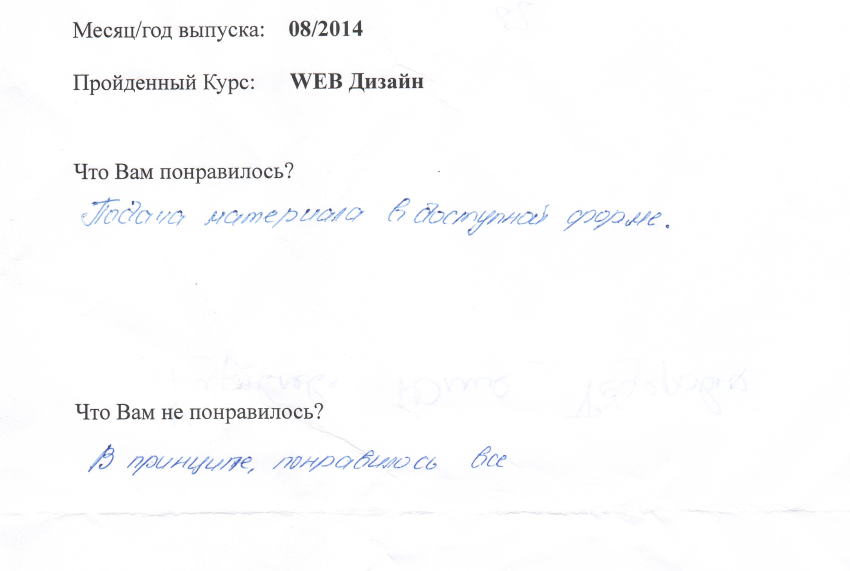 Месяц/год выпуска: 08/2014
Пройденный Курс: WEB Дизайн
Что Вам понравилось?
Подача материала в доступной форме.
Что Вам не понравилось?
В принципе, понравилось все